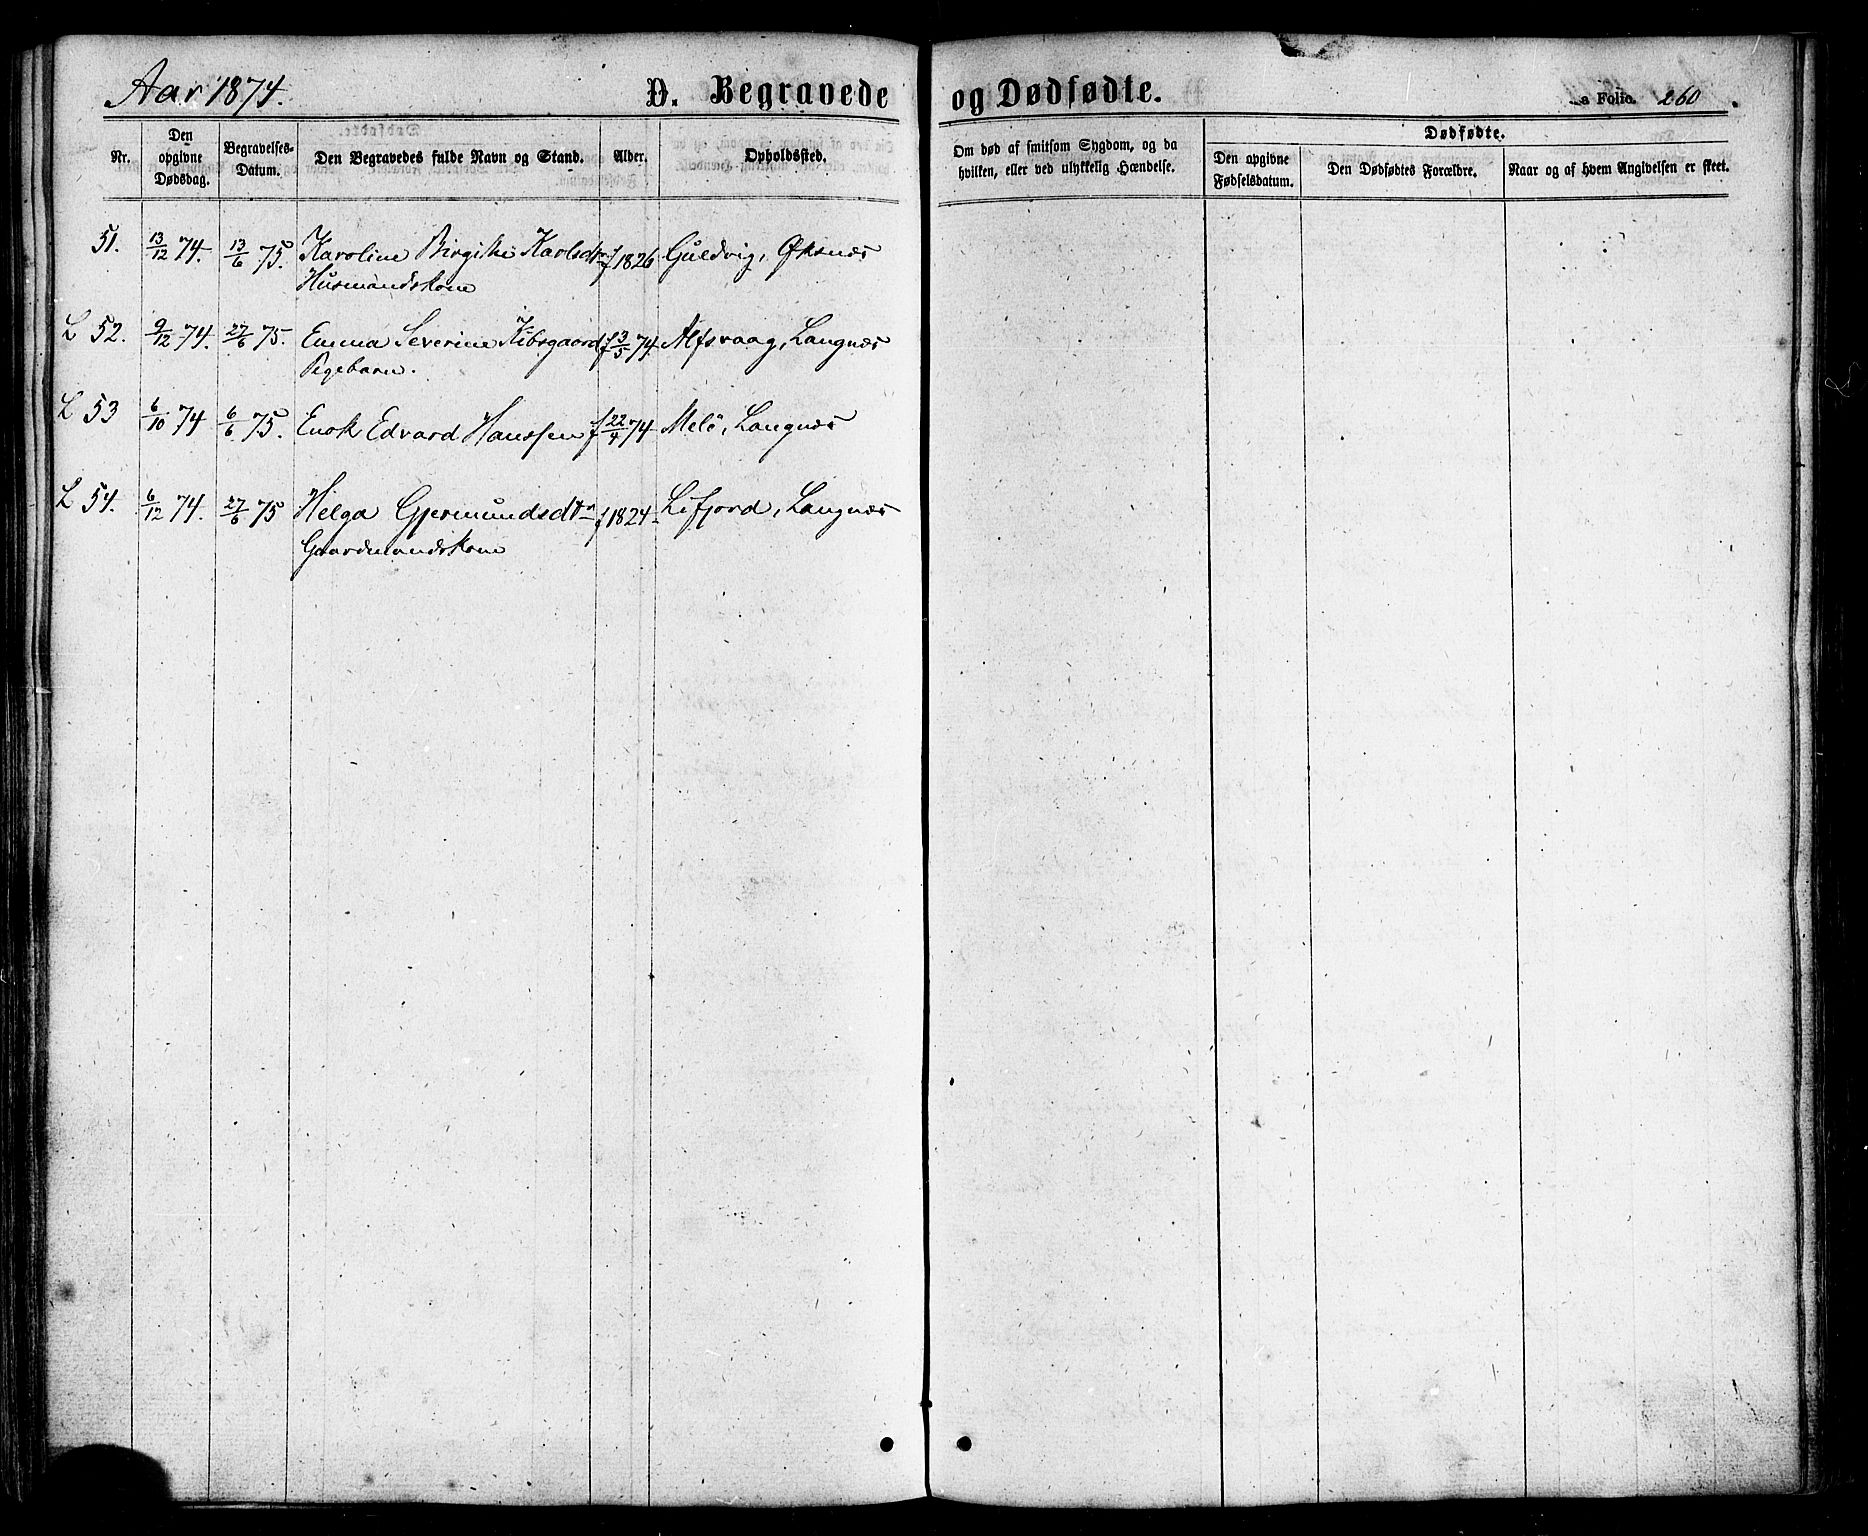 Aar 1874. D. Begravede og Dødfødte. Folio. 260
Nr. Den opgivne Dødsdag. Begravelses-Datum. Den Begravedes fulde Navn og Stand. Alder. Opholdssted. Om død af smitsom Sygdom, og da hvilken, eller ved ulykkelig Hændelse. Dødfødte. Den opgivne Fødselsdatum. Den Dødfødtes Forældre. Naar og af hvem Angivelsen er skeet.
51. 13/12 74. 13/6 75. Karoline Birgitte Karlsdtr f 1826 Guldvig, Øksnæs
Husmandskone
L 52. 9/12 74. 27/6 75. Emma Severine Kibsgaard f 3/5 74 Alfsvaag, Langnæs
Pigebarn.
L 53 6/10 74 6/6 75. Enok Edvard Hanssen f 22/4 74 Melö, Langnæs
L 54. 6/12 74. 27/6 75 Helga Gjermundsdtr f 1824 Lifjord, Langnæs
Gaardmandskone